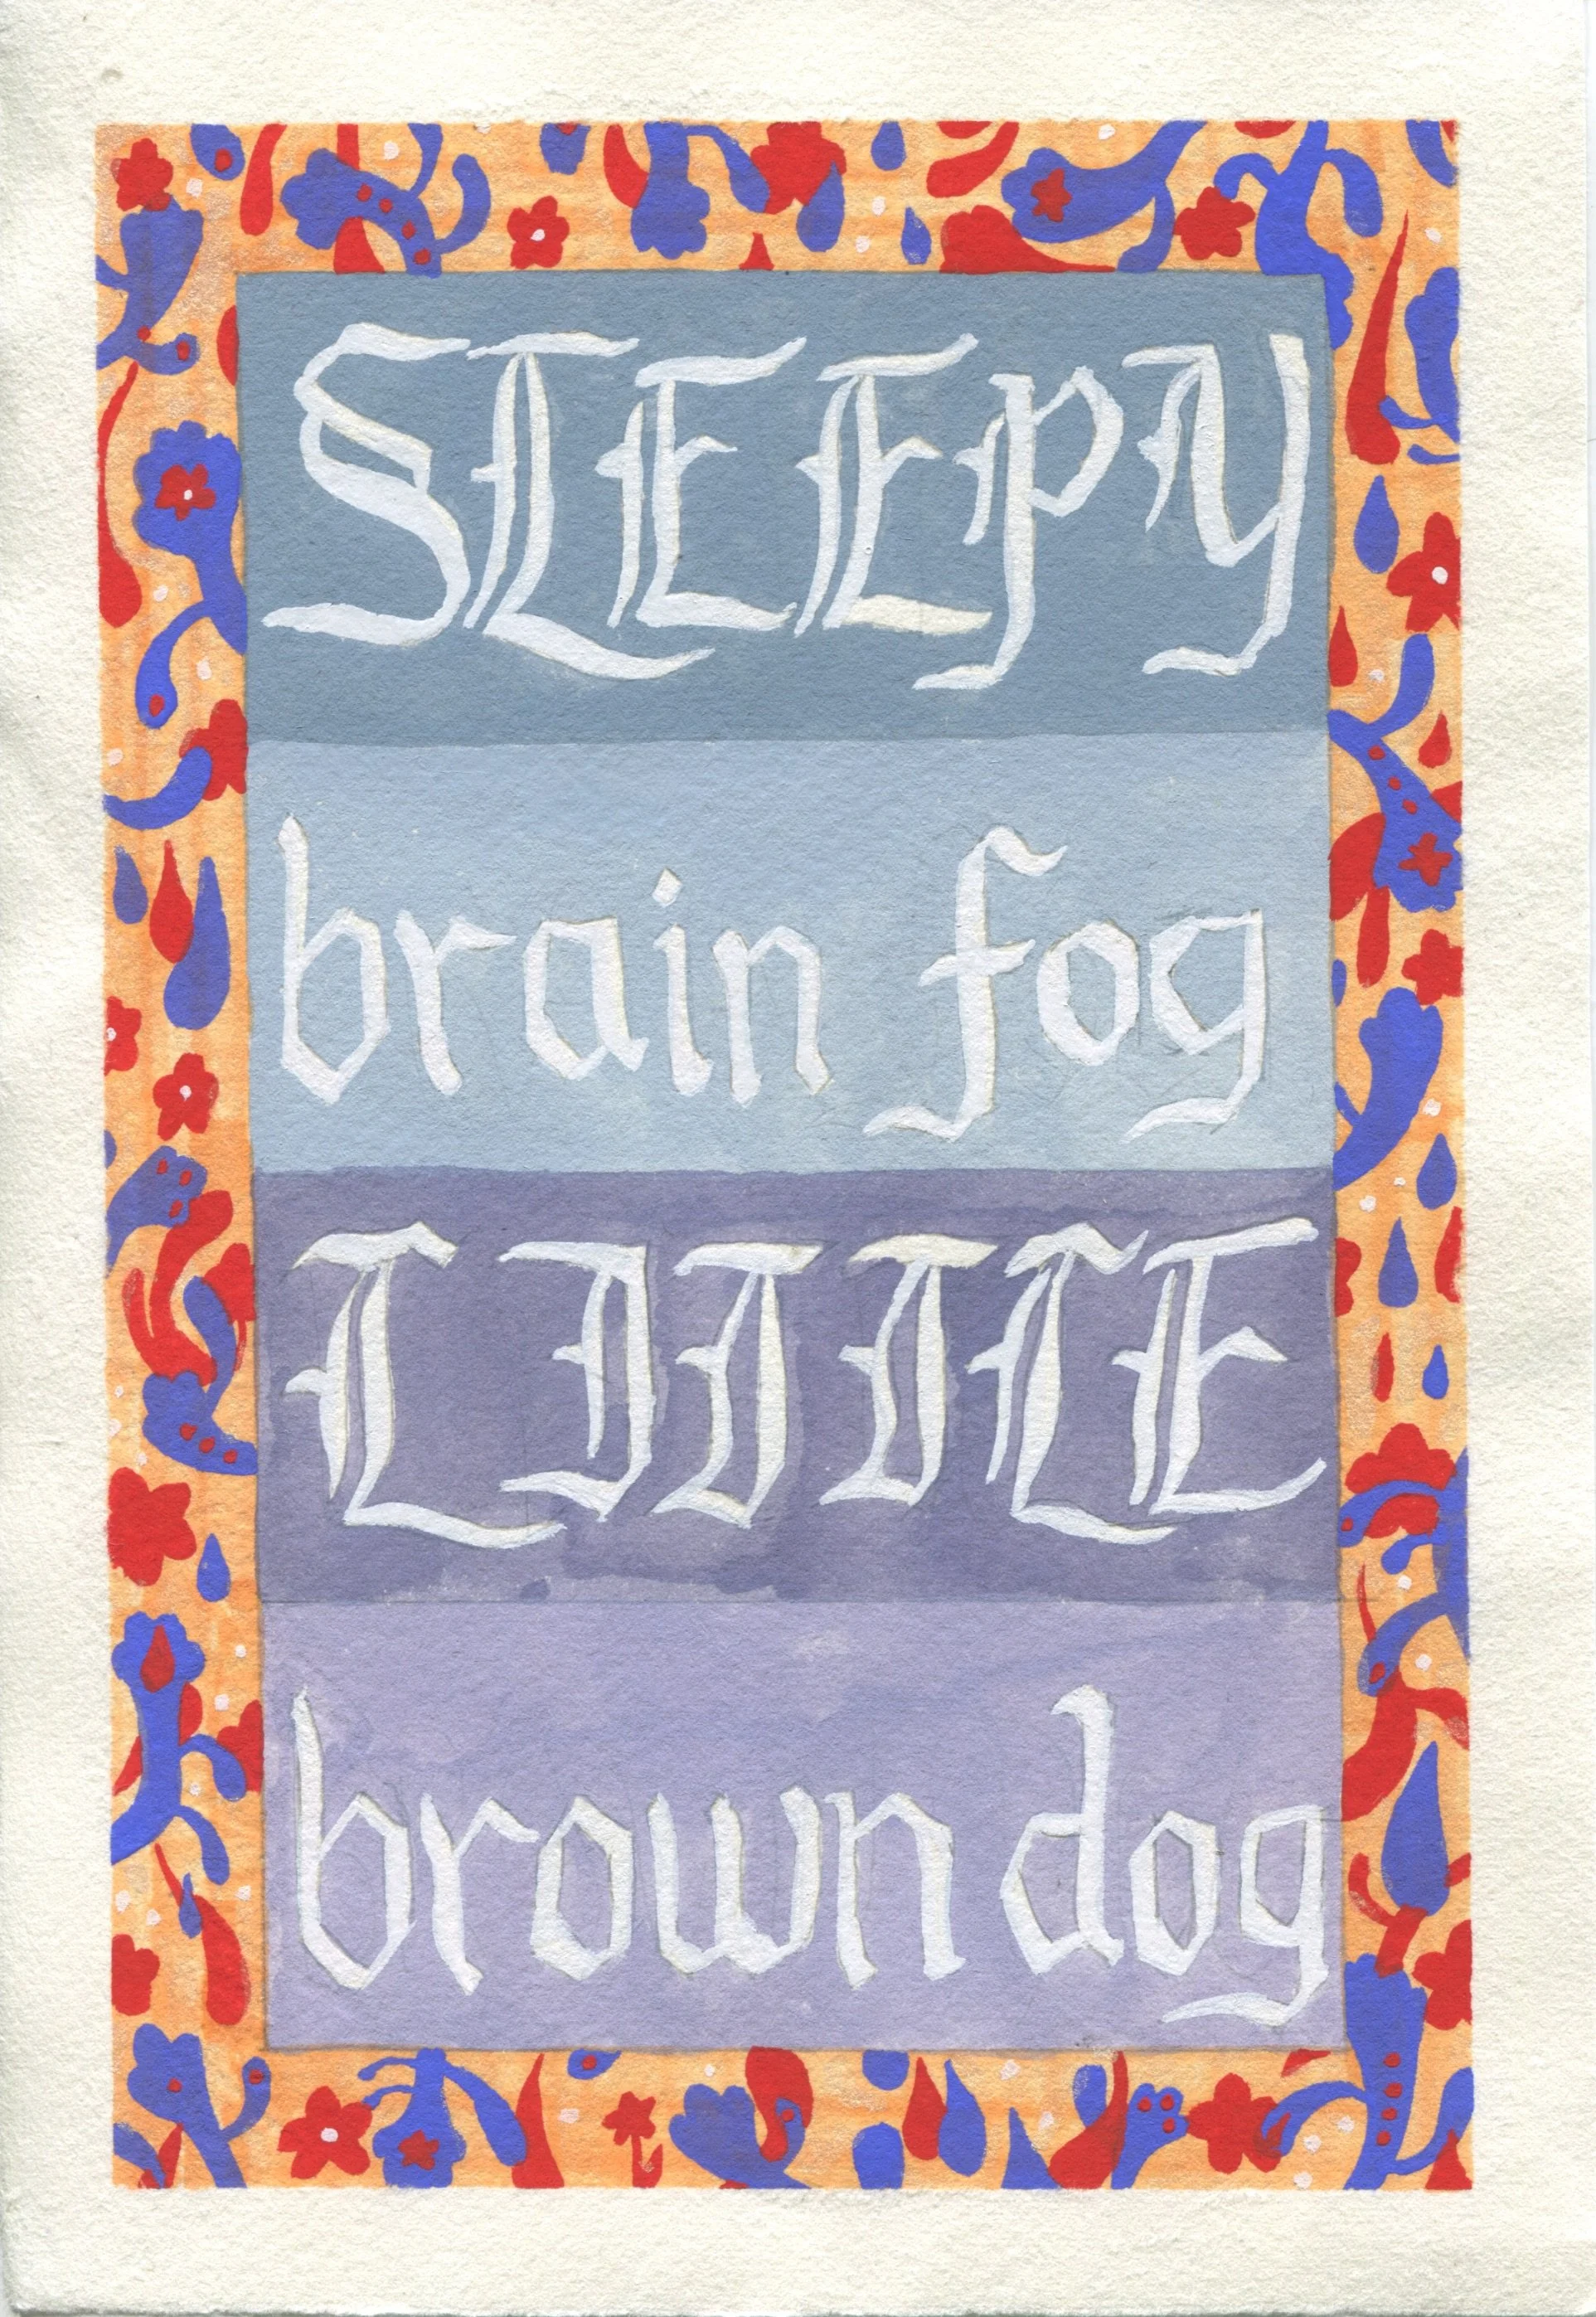 SLEEPY
brain fog
LITTLE
brown dog